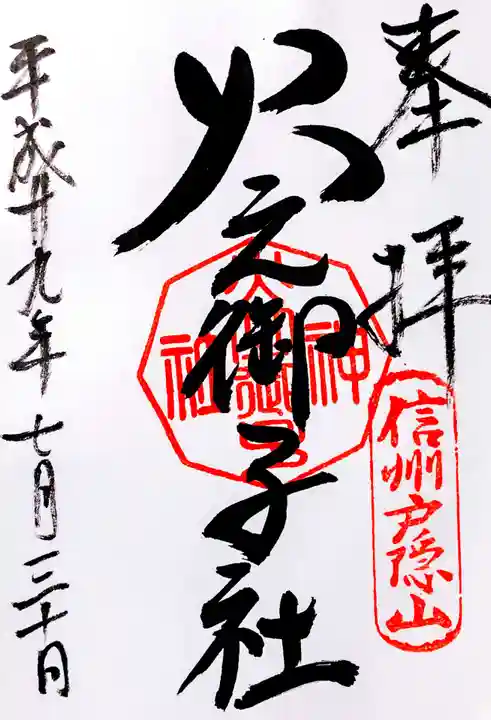 奉拝
信州戸隠山
火之御子社
平成廿九年七月三十日